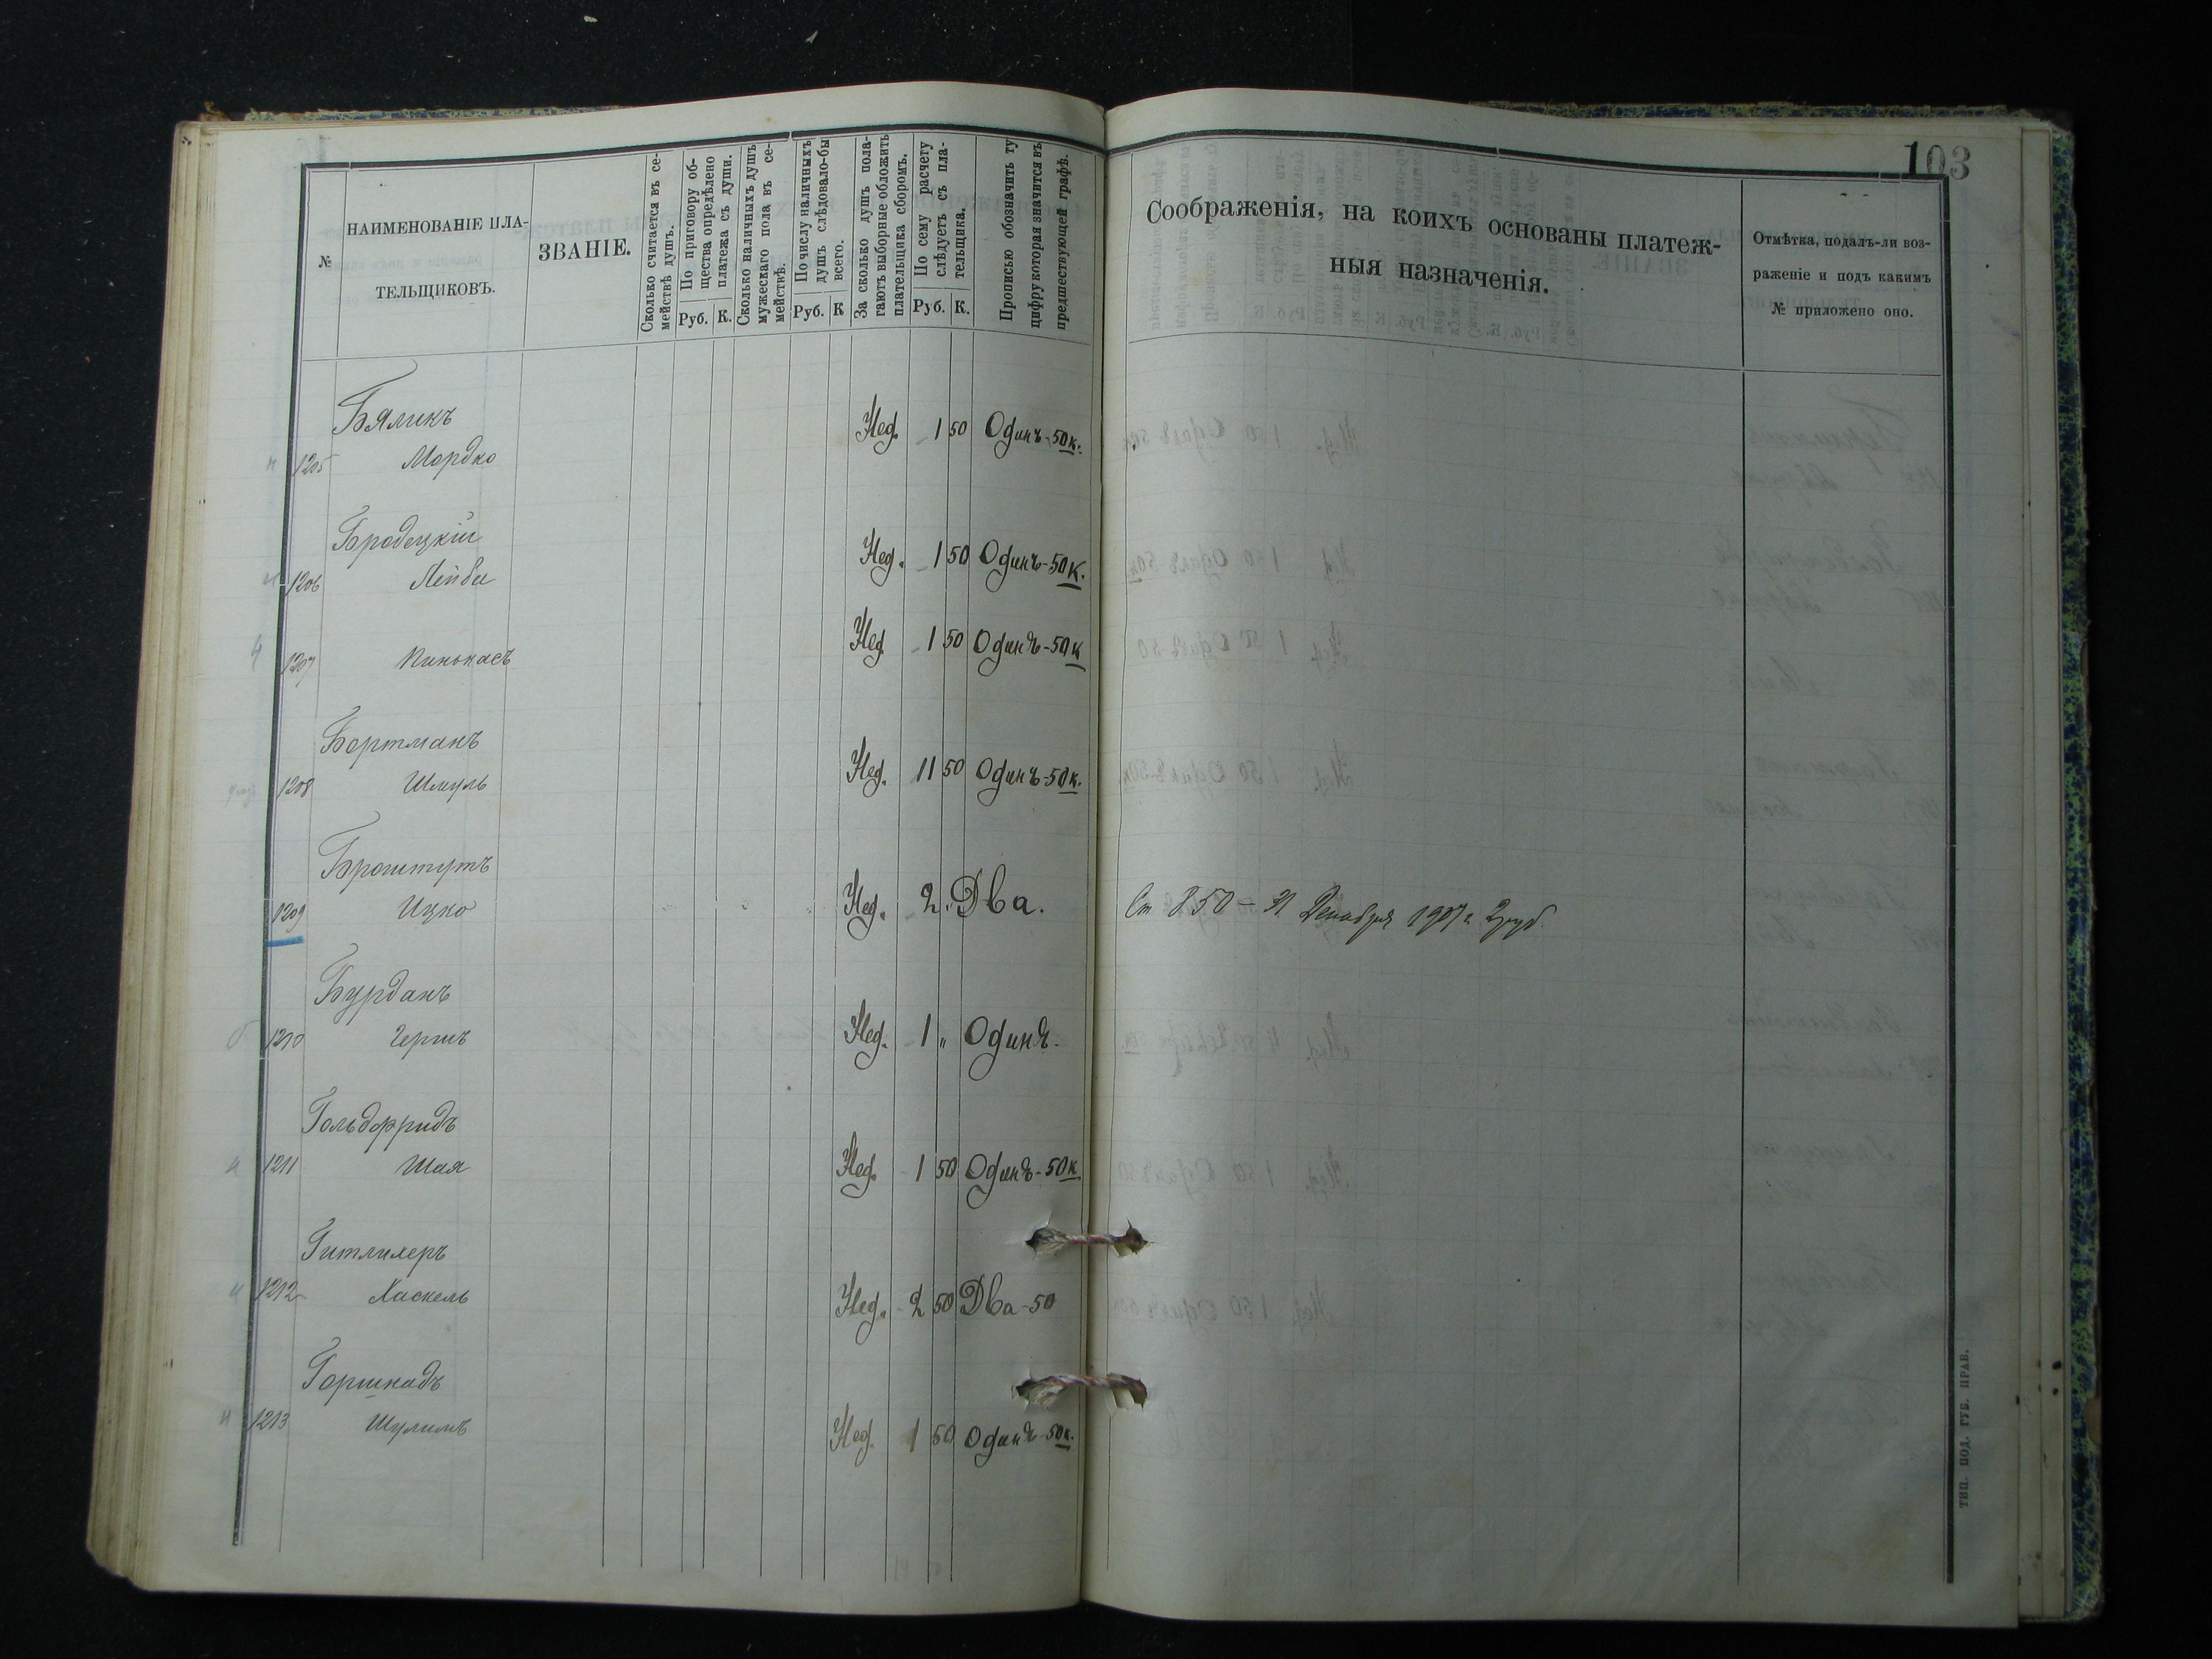 103
№
НАИМЕНОВАНІЕ ПЛА-
ТЕЛЬЩИКОВЪ.
ЗВАНІЕ.
Сколько считается въ се-
мействѣ душъ.
По приговору об-
щества опредѣлено
платежа съ души.
Руб. К.
Сколько наличныхъ душъ
мужескаго пола въ се-
мействѣ.
По числу наличныхъ
душъ слѣдовало-бы
всего.
Руб. К
За сколько душъ пола-
гаютъ выборные обложить
плательщика сборомъ.
По сему расчету
слѣдуетъ съ пла-
тельщика.
Руб. К.
Прописью обозначить ту
цифру которая значится въ
предшествующей графѣ.
Соображенія, на коихъ основаны платеж-
ныя назначенія.
Отмѣтка, подалъ-ли воз-
раженіе и подъ какимъ
№ приложено оно.
Бяликъ
1205 Мордко Нед. 1 50 Одинъ-50к.
Бродецкій
1206 Лейба Нед. 1 50 Одинъ-50к.
1207 Пинкасъ Нед 1 50 Одинъ-50к
Бортманъ
1208 Шмуль Нед. 11 50 Одинъ-50к.
Броштутъ
1209 Ицко Нед. 2 Два. Ст 850 - 31 Декабря 1907 г. 2 руб.
Бурданъ
1210 Гершъ Нед. 1 „ Одинъ.
Гольдфридъ
1211 Шая Нед. 1 50 Одинъ-50к
Гитлихеръ
1212 Хаскель Нед. 2 50 Два-50
Горшкадъ
1213 Шулимъ Нед. 1 50 Одинъ 50к.
ТИП. ПОД. ГУБ. ПРАВ.